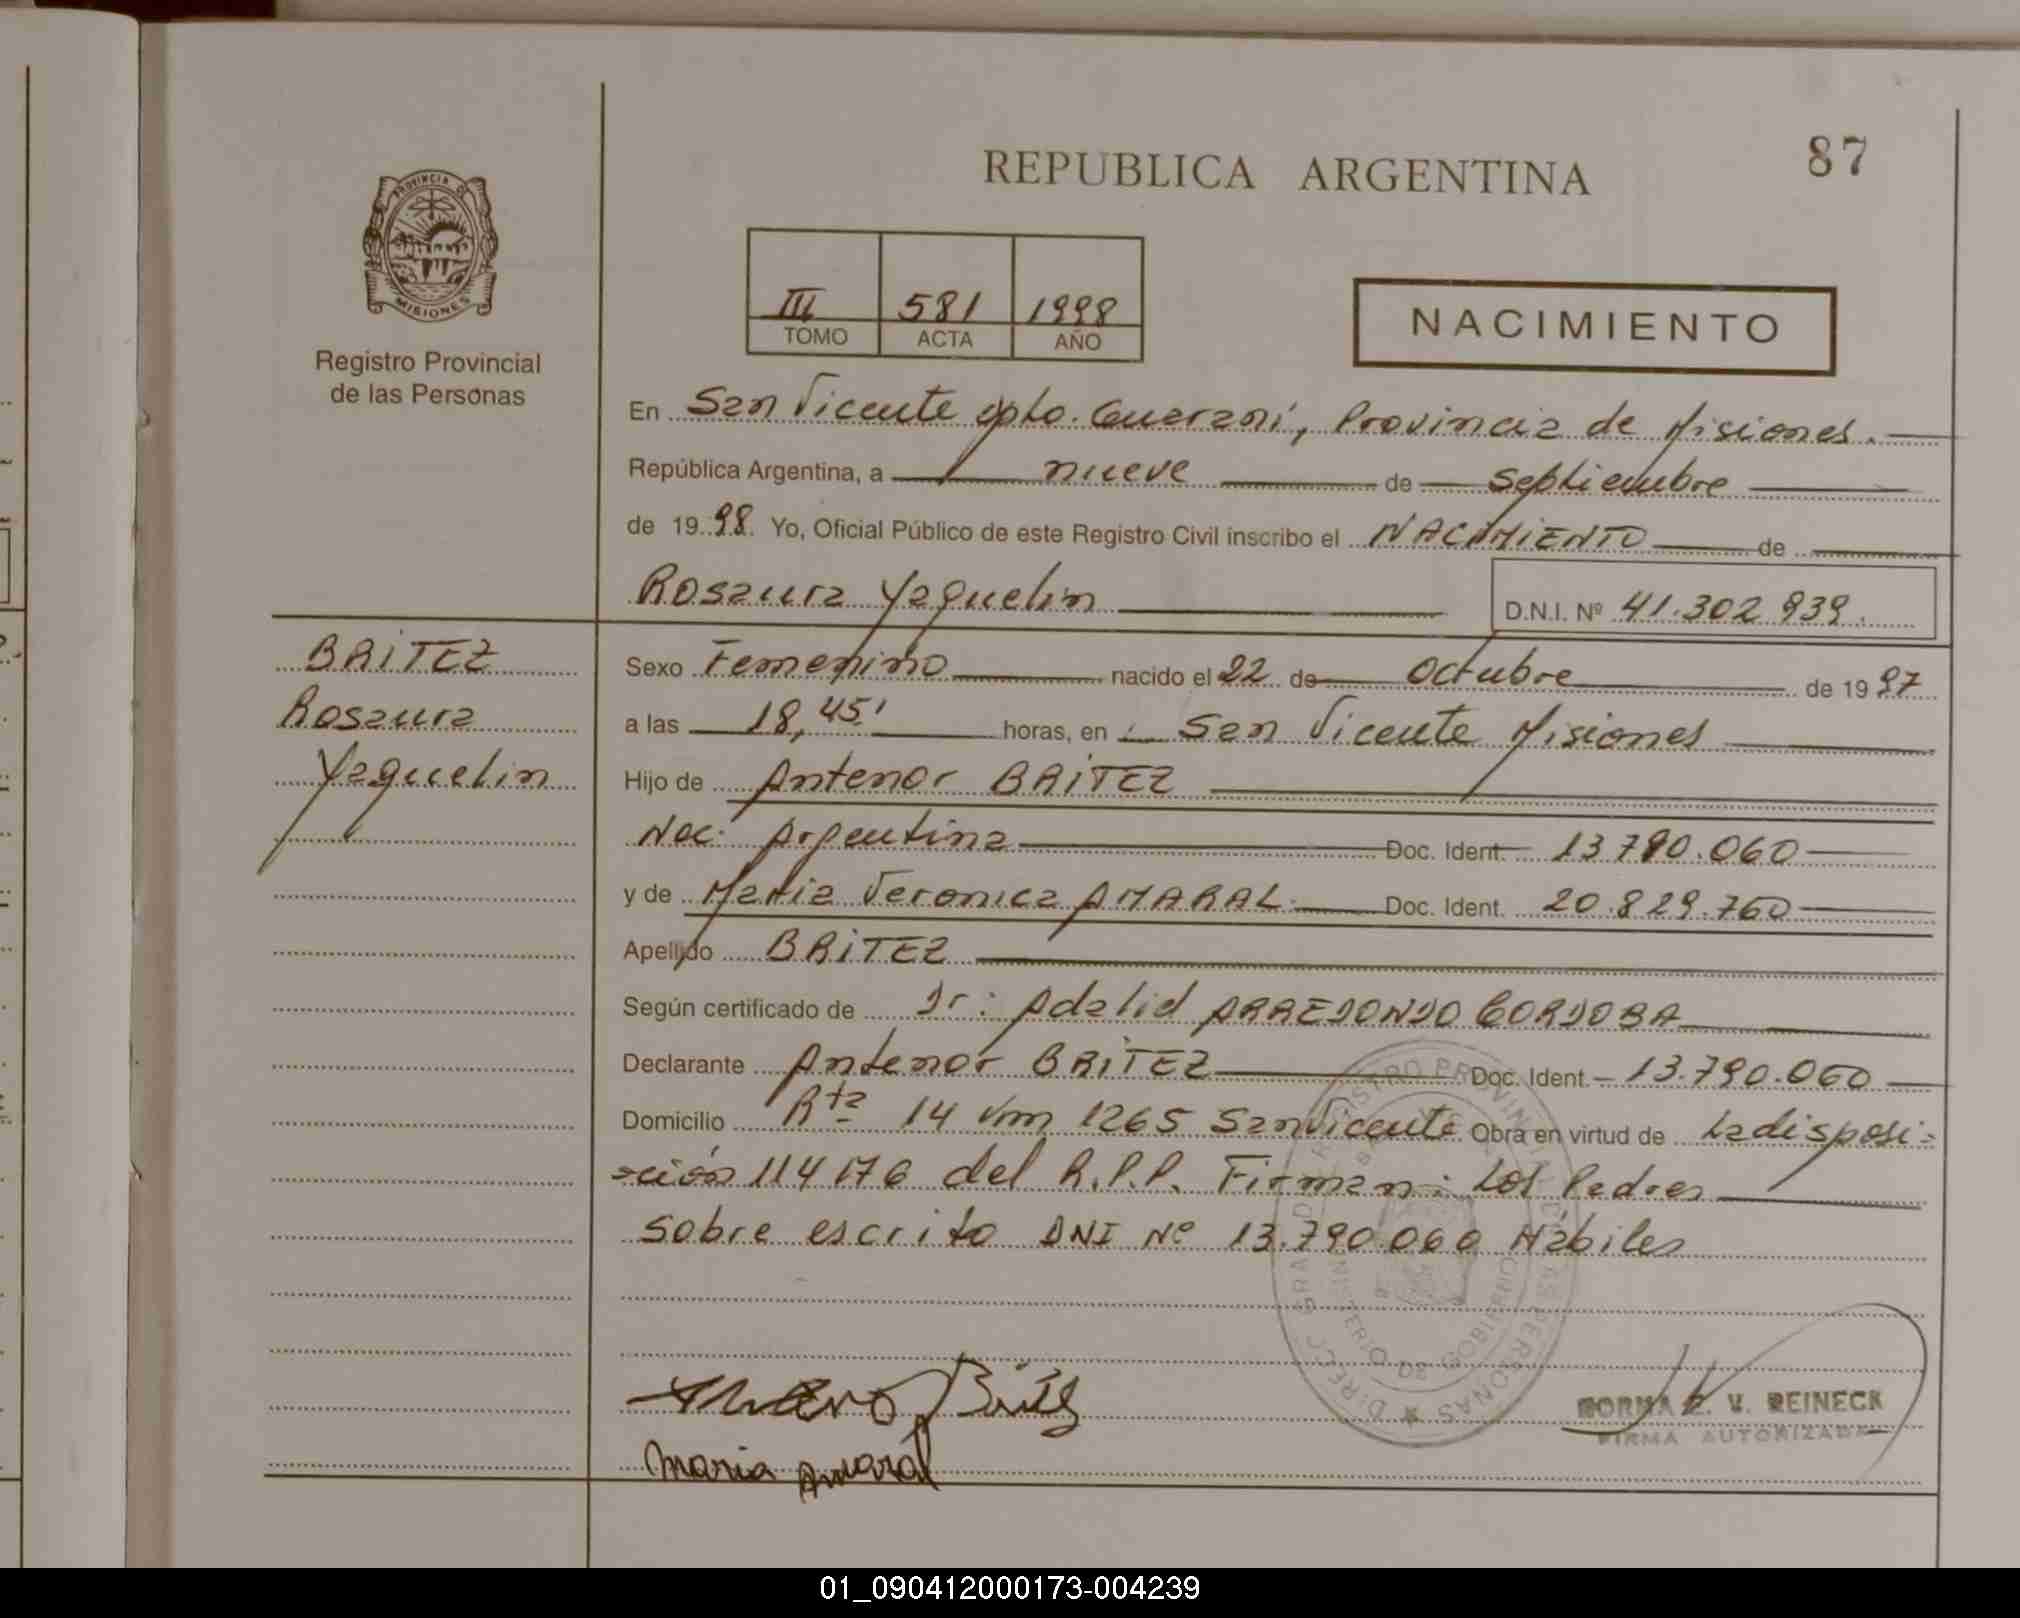 87
REPUBLICA ARGENTINA
PROVINCIA DE
MISIONES
Registro Provincial
de las Personas
III 581 1998
TOMO ACTA AÑO
NACIMIENTO
En San Vicente dpto. Guarani, Provincia de Misiones.
República Argentina, a nueve de Septiembre
de 1998. Yo, Oficial Público de este Registro Civil inscribo el NACIMIENTO de
Rosaura Yaquelin D.N.I. Nº 41.302 939.
BRITEZ
Rosaura
Yaquelin
Sexo Femenino nacido el 22 de Octubre de 1997
a las 18,45' horas, en San Vicente Misiones
Hijo de Antenor BRITEZ
Nac. Argentina Doc. Ident. 13 790.060
y de Maria Veronica AMARAL Doc. Ident. 20.829.760
Apellido BRITEZ
Según certificado de Dr: Adalid ARREDONDO CORDOBA
Declarante Antenor BRITEZ Doc. Ident. 13.790.060
Domicilio Rta 14 Km 1265 San Vicente Obra en virtud de La disposi=
=ción 114176 del R.P.P. Firman: Los Padres
Sobre escrito DNI Nº 13.790.060 Hábiles
Maria Amaral
NORMA E. V. REINECK
FIRMA AUTORIZADA
01_090412000173-004239